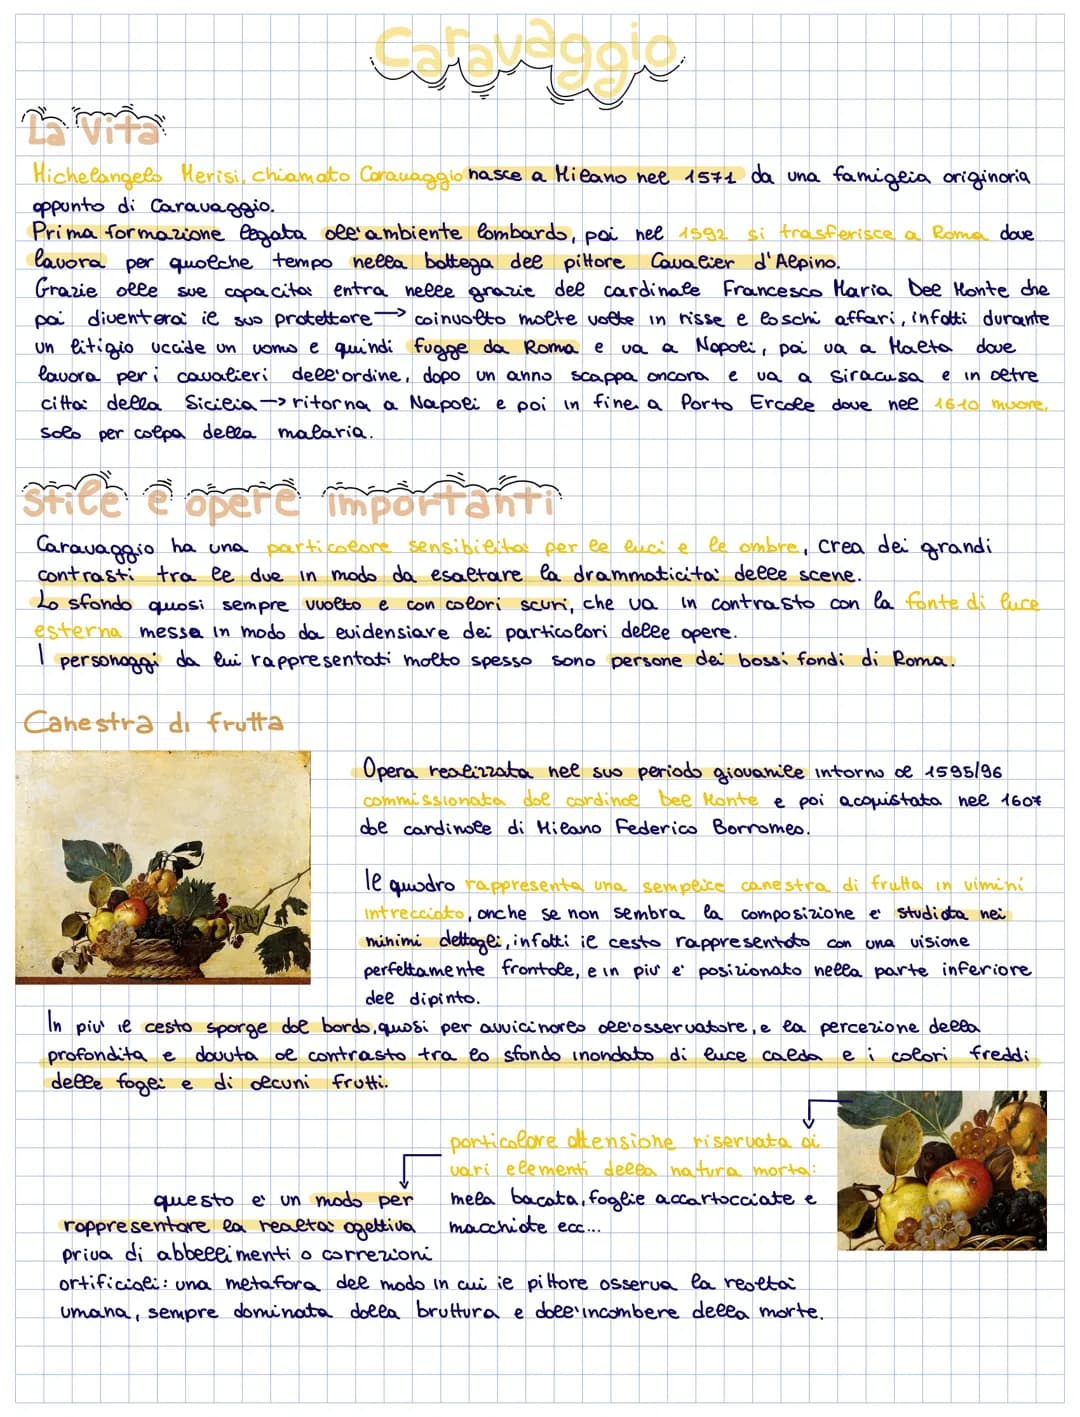 Caravaggio
La Vita
Michelangelo Merisi, chiamato Caravaggio nasce a Milano nel 1571 da una famiglia originaria
appunto di Caravaggio.
Prima formazione legata all'ambiente lombardo, poi nel 1592 si trasferisce a Roma dove
lavora per qualche tempo nella bottega del pittore Cavalier d'Alpino.
Grazie alle sue capacità entra nelle grazie del cardinale Francesco Maria Del Monte che
poi diventerà il suo protettore → coinvolto molte volte in risse e loschi affari, infatti durante
un litigio uccide un uomo e quindi fugge da Roma e va a Napoli, poi va a Malta dove
lavora per i cavalieri dell'ordine, dopo un anno scappa ancora e va a Siracusa e in altre
città della Sicilia → ritorna a Napoli e poi in fine a Porto Ercole dove nel 1610 muore,
solo per colpa della malaria.
Stile e opere importanti
Caravaggio ha una particolare sensibilità per le luci e le ombre, crea dei grandi
contrasti tra le due in modo da esaltare la drammaticità delle scene.
Lo sfondo quasi sempre vuolto e con colori scuri, che va in contrasto con la fonte di luce
esterna messa in modo da evidensiare dei particolari delle opere.
I personaggi da lui rappresentati molto spesso sono persone dei bassi fondi di Roma.
Canestra di frutta
Opera realizzata nel suo periodo giovanile intorno al 1595/96
commissionata dal cardinal Del Monte e poi acquistata nel 1607
dal cardinale di Milano Federico Borromeo.
Il quadro rappresenta una semplice canestra di frutta in vimini
intrecciato, anche se non sembra la composizione e' studiata nei
minimi dettagli, infatti il cesto rappresentato con una visione
perfettamente frontale, e in piu' e' posizionato nella parte inferiore
del dipinto.
In piu' il cesto sporge dal bordo, quasi per avvicinares all'osservatore, e la percezione della
profondità e dovuta al contrasto tra lo sfondo inondato di luce calda e i colori freddi
delle foglie e di alcuni frutti.
particolare attensione riservata ai
vari elementi della natura morta:
mela bacata, foglie accartocciate e
macchiate ecc...
questo e' un modo per
rappresentare la realtà ogettiva
priva di abbellimenti o correzioni
artificiali: una metafora del modo in cui il pittore osserva la realtà
umana, sempre dominata dalla bruttura e dall'incombere della morte.